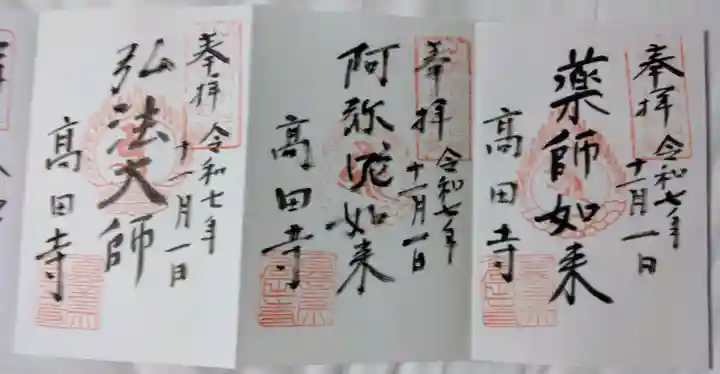 奉拝
令和七年
十一月一日
薬師如来
高田寺
奉拝
令和七年
十一月一日
阿弥陀如来
高田寺
奉拝
令和七年
十一月一日
弘法大師
高田寺